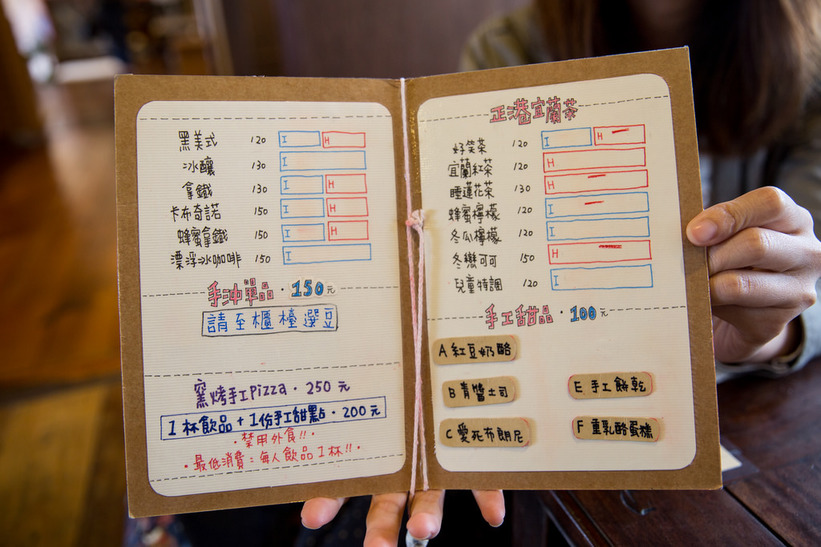 黑美式 120 I H
冰釀 130 I
拿鐵 130 I H
卡布奇諾 150 I H
蜂蜜拿鐵 150 I H
漂浮冰咖啡 150 I
手沖單品・150元
請至櫃檯選豆
窯烤手工Pizza・250元
1杯飲品+1份手工甜點・200元
・禁用外食!!
・最低消費=每人飲品1杯!!
正港宜蘭茶
好笑茶 120 I H
宜蘭紅茶 120 H
睡蓮花茶 130 H
蜂蜜檸檬 120 I
冬瓜檸檬 120 I
冬戀可可 150 H
兒童特調 120 I
手工甜品・100元
A 紅豆奶酪
B 青醬土司
C 愛死布朗尼
E 手工餅乾
F 重乳酪蛋糕